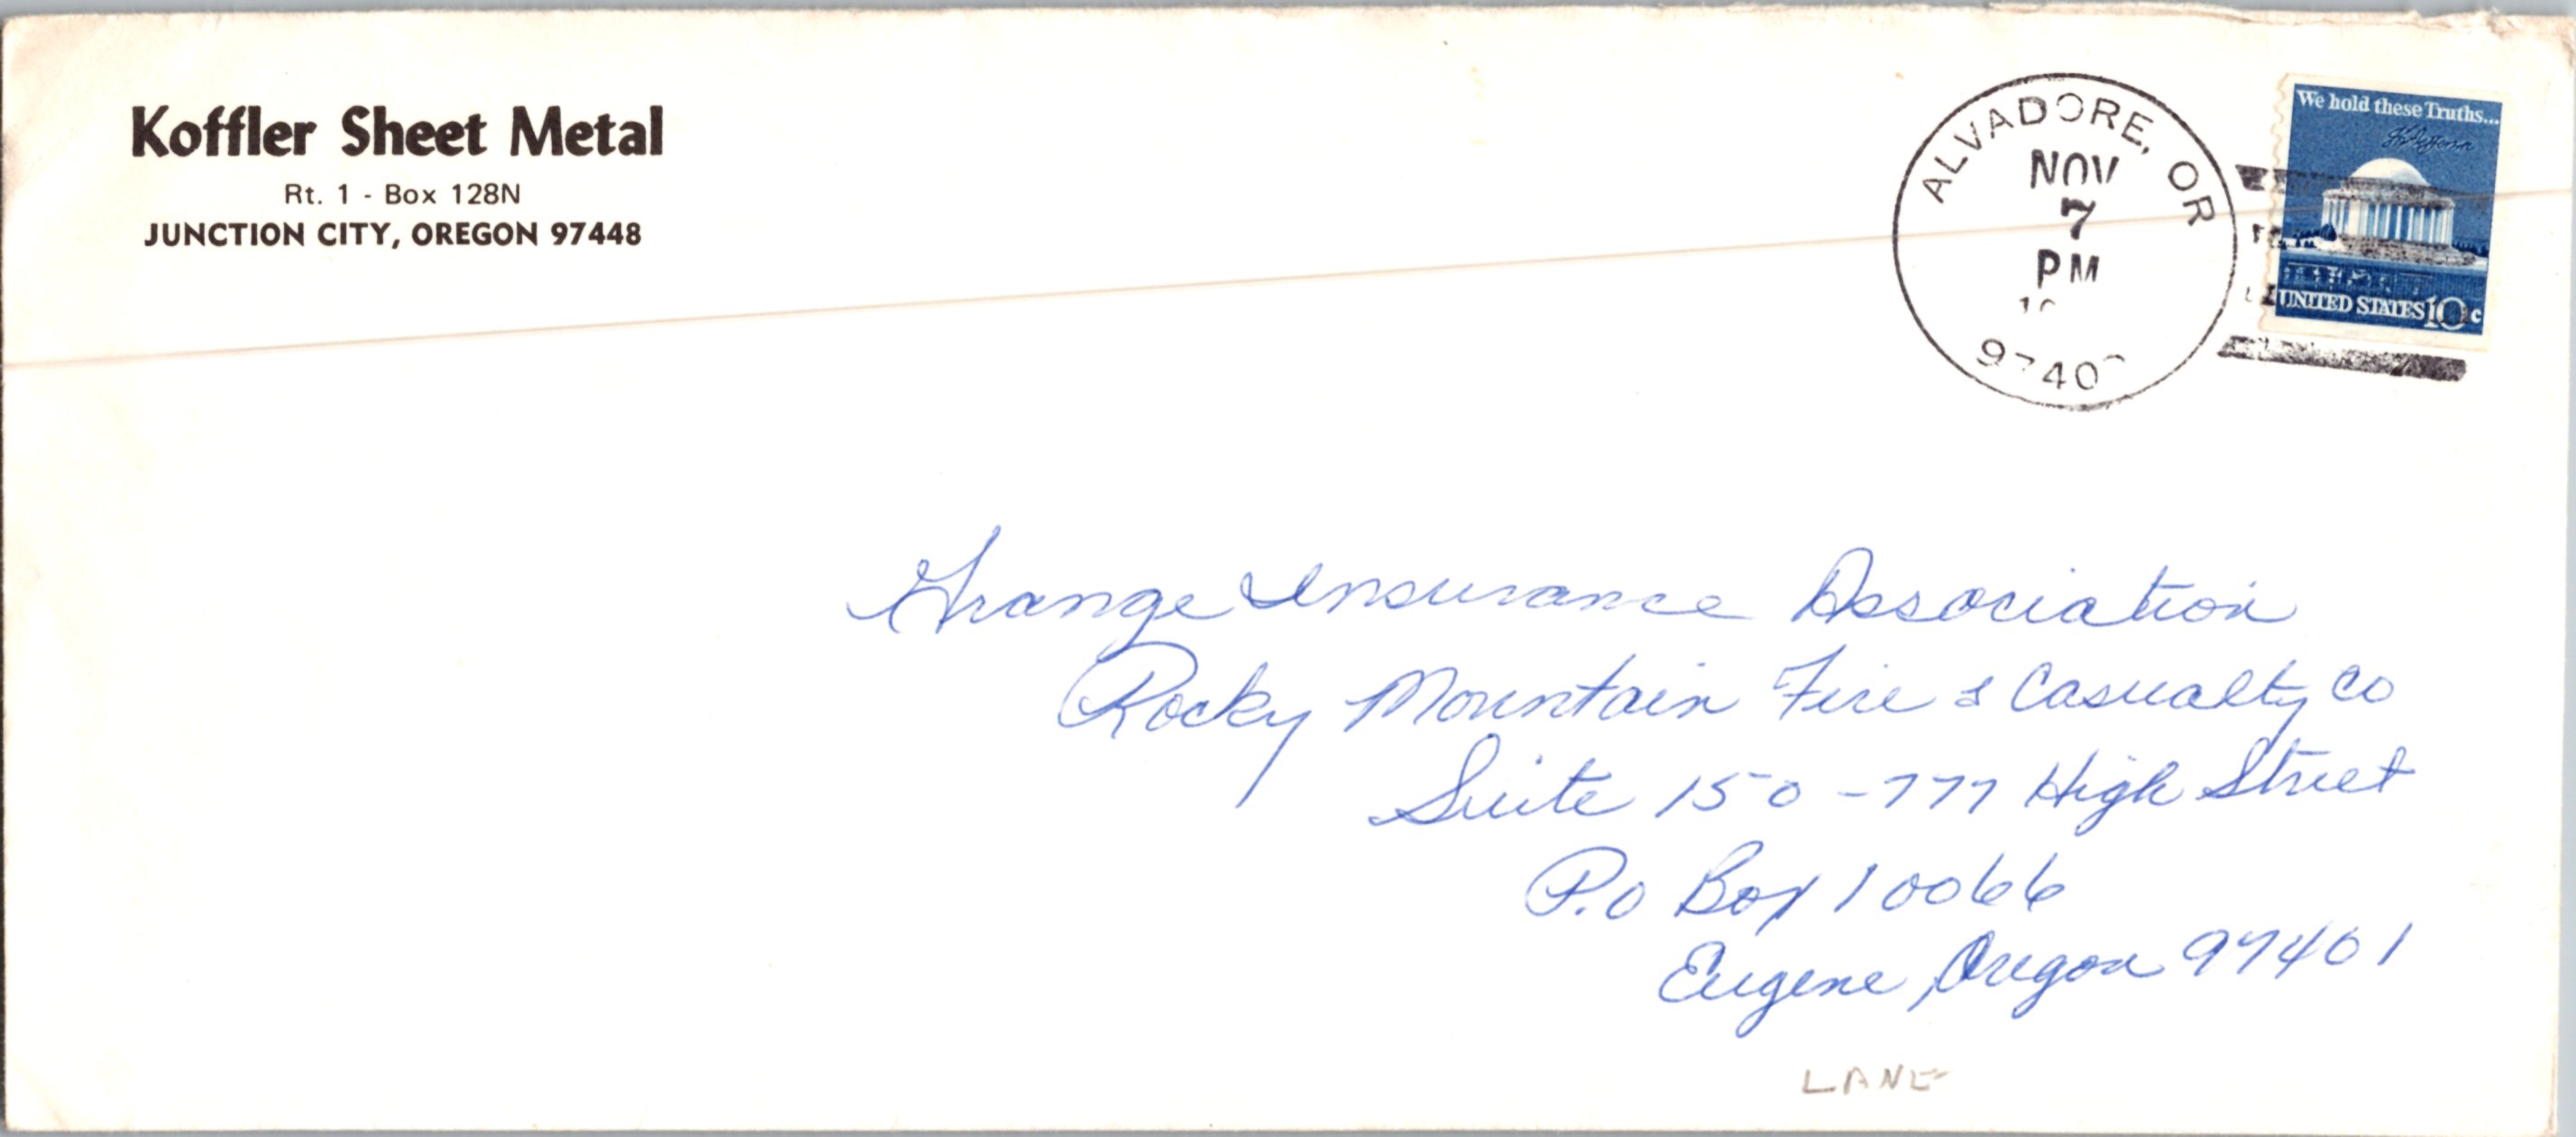 Koffler Sheet Metal
Rt. 1 - Box 128N
JUNCTION CITY, OREGON 97448
ALVADORE, OR
NOV
7
PM
We hold these Truths...
UNITED STATES 10c
Grange Insurance Association
Rocky Mountain Fire & Casualty Co
Suite 150 - 777 High Street
P.O Box 10066
Eugene, Oregon 97401
LANE